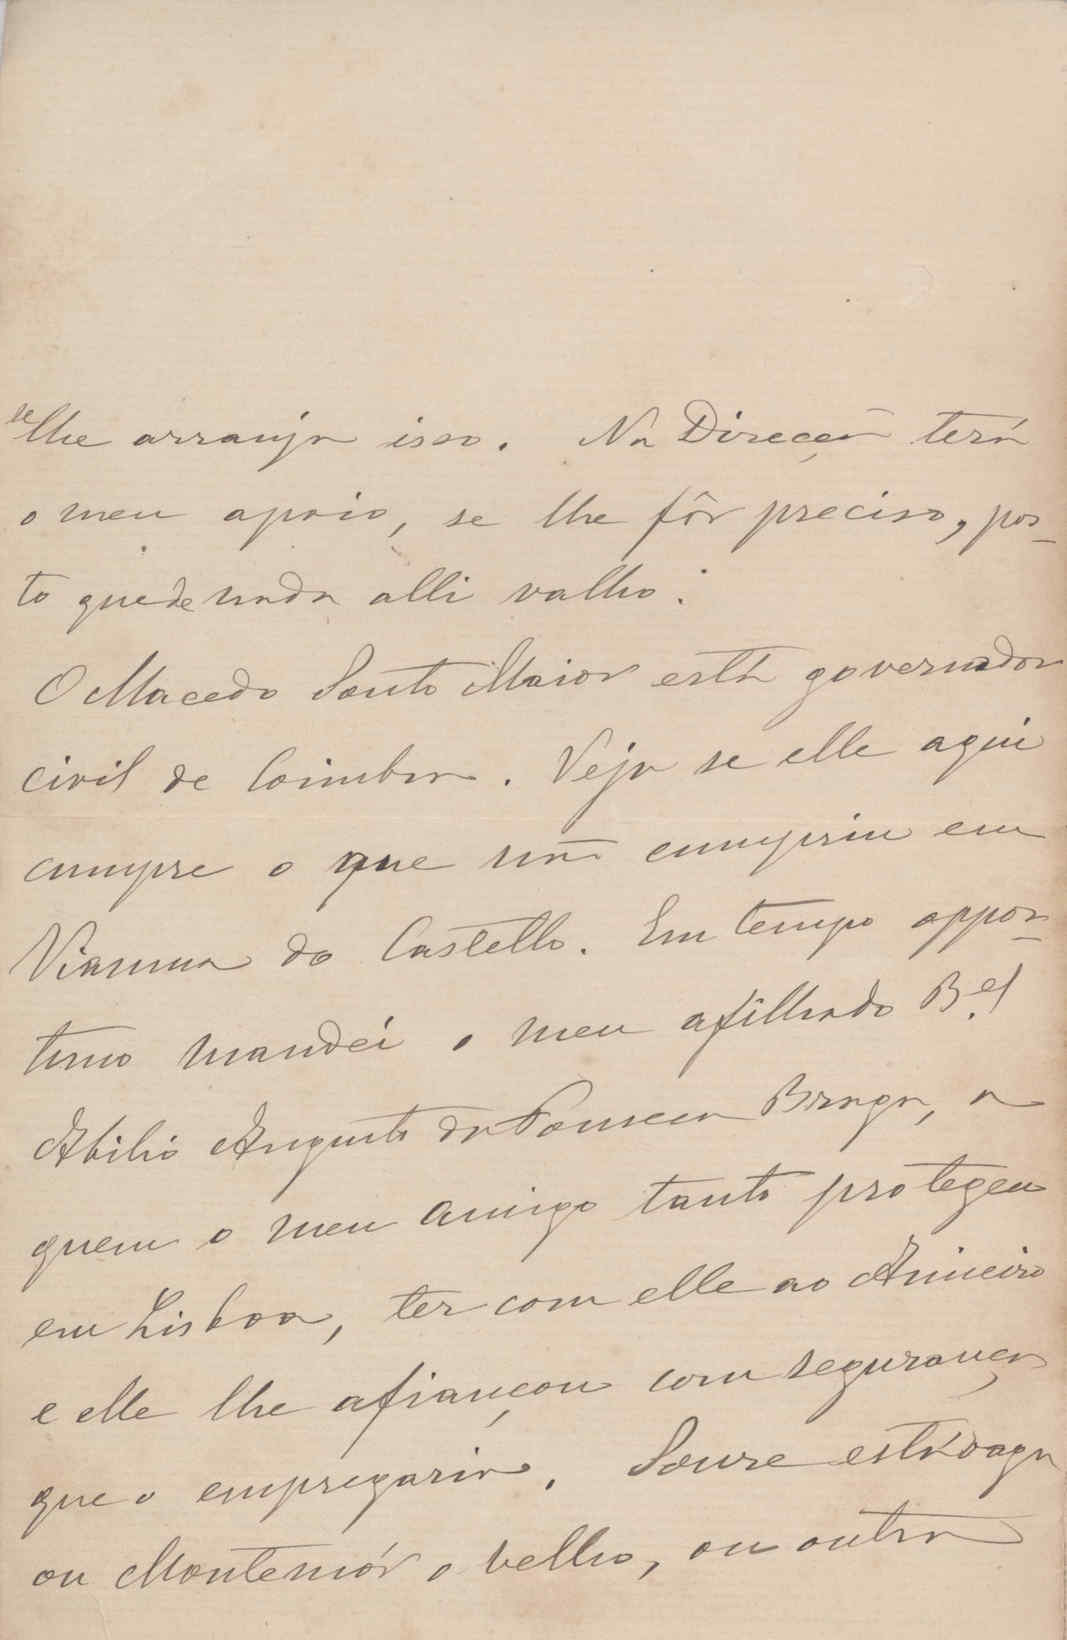 se lhe arranja isso. Na Direcção terá
o meu apoio, se lhe fôr preciso, pos-
to que de nada alli valho.
O Macedo Souto Maior está governador
civil de Coimbra. Veja se elle aqui
cumpre o que não cumpriu em
Vianna do Castello. Em tempo oppor-
tuno mandei o meu afilhado Bel
Abilio Augusto da Fonseca Braga, a
quem o meu amigo tanto protegeu
em Lisboa, ter com elle ao
e elle lhe afiançou com segurança
que o empregaria. Soure está vaga
ou Montemór o velho, ou outra